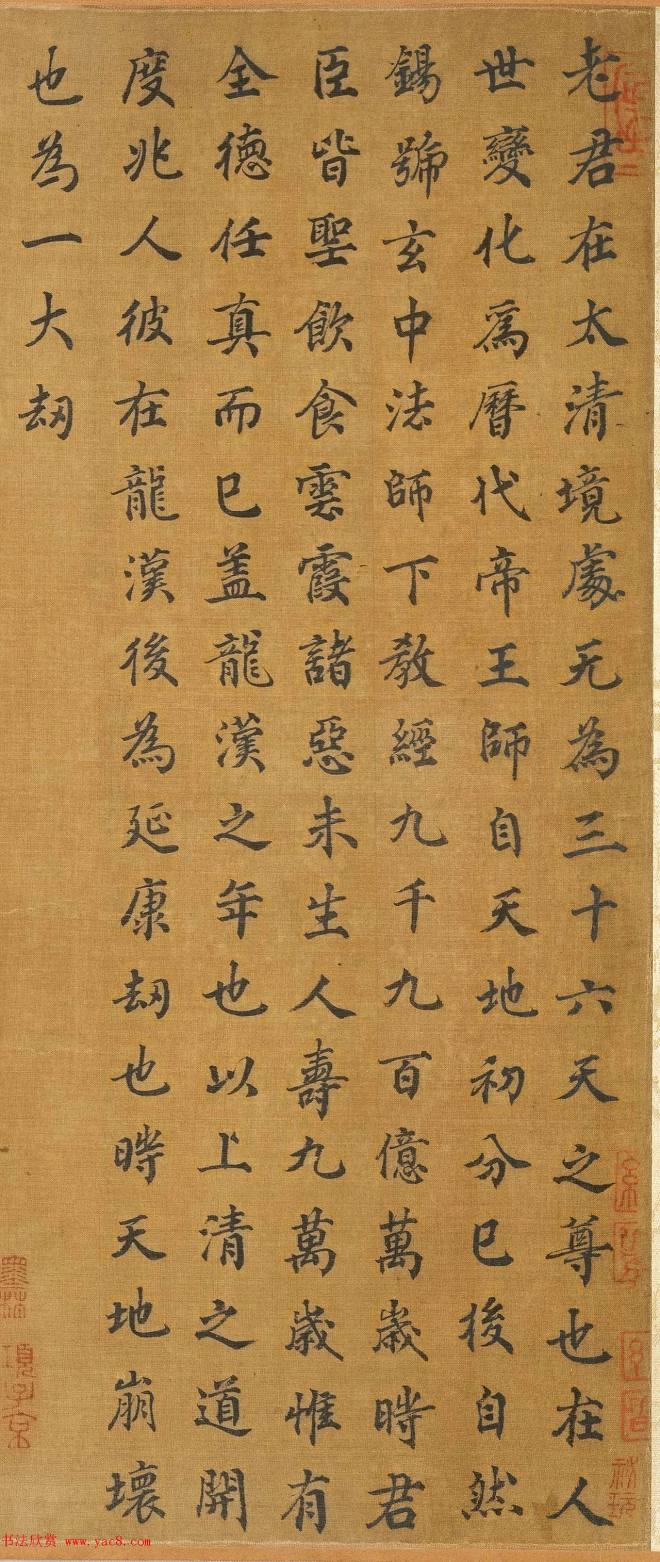 老君在太清境處无為三十六天之尊也在人
世變化爲曆代帝王師自天地初分已後自然
錫號玄中法師下教經九千九百億萬歲時君
臣皆聖飲食雲霞諸惡未生人壽九萬歲惟有
全德任真而已盖龍漢之年也以上清之道開
度兆人彼在龍漢後為延康刼也時天地崩壞
也為一大刼
墨林
項子京
书法欣赏 www.yac8.com